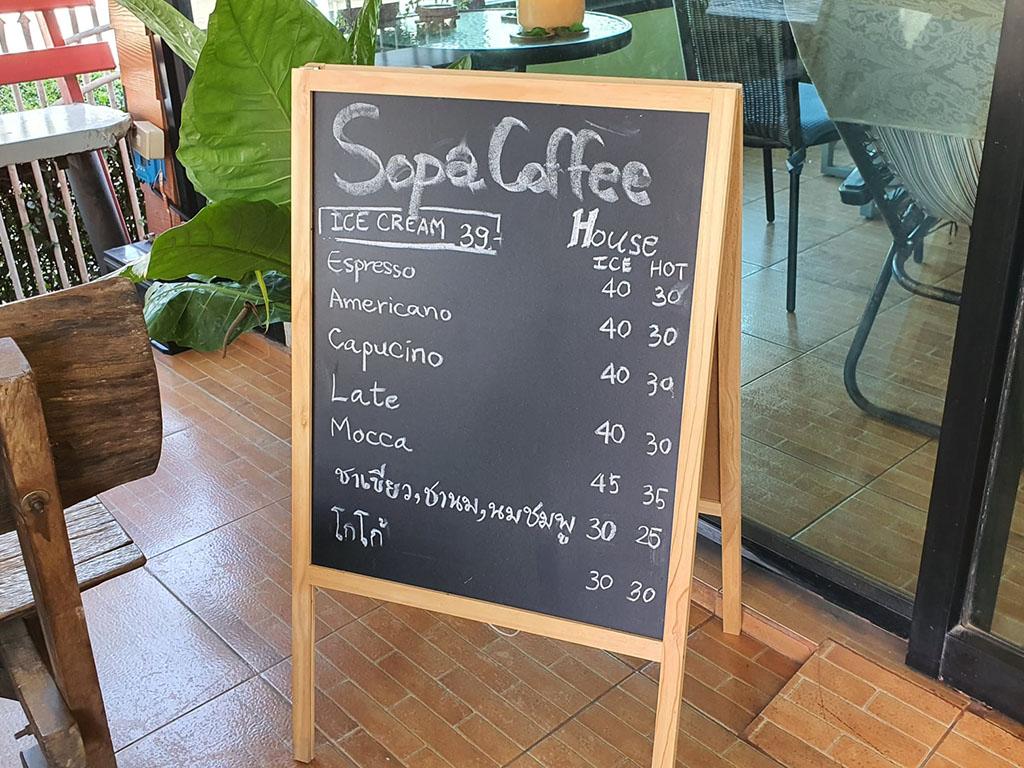 Sopa Coffee House
ICE CREAM 39.-
ICE HOT
Espresso 40 30
Americano 40 30
Capucino 40 30
Late 40 30
Mocca 45 35
ชาเขียว,ชานม,นมชมพู 30 25
โกโก้ 30 30